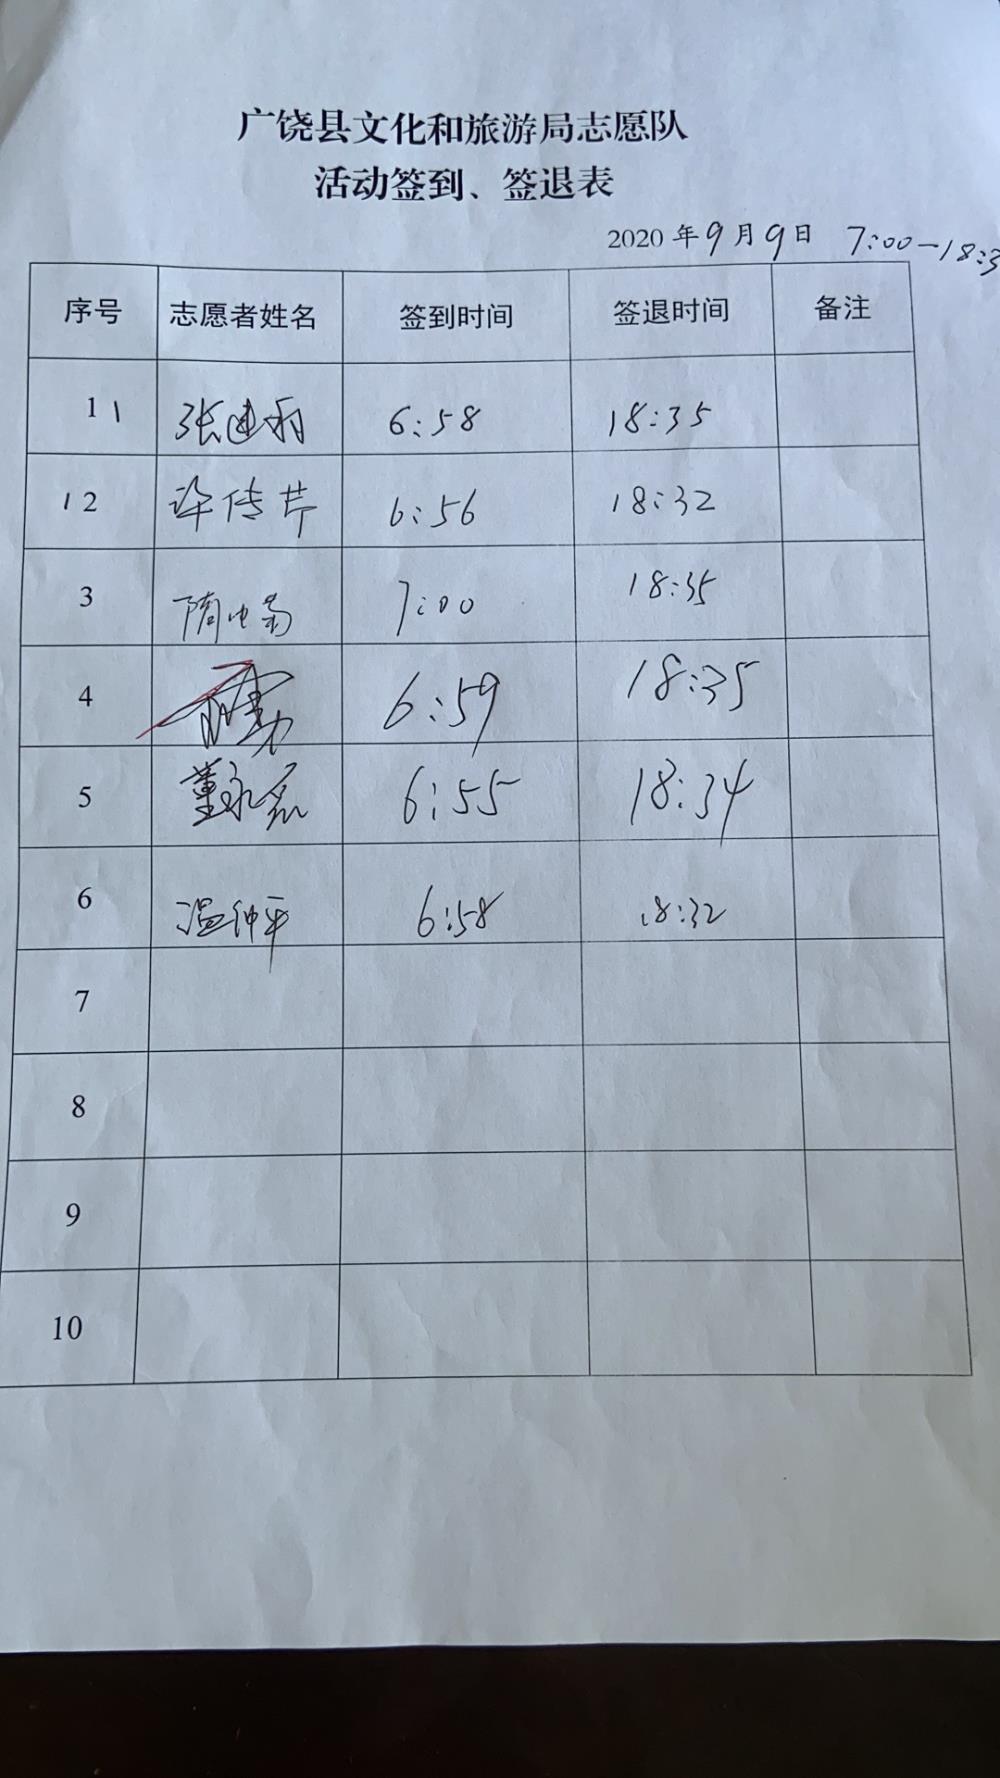 广饶县文化和旅游局志愿队
活动签到、签退表
2020年9月9日 7:00-18:3
序号 志愿者姓名 签到时间 签退时间 备注
11 张建利 6:58 18:35
12 许传芹 6:56 18:32
3 隋 7:00 18:35
4 6:59 18:35
5 董永磊 6:55 18:34
6 温钟平 6:58 18:32
7
8
9
10